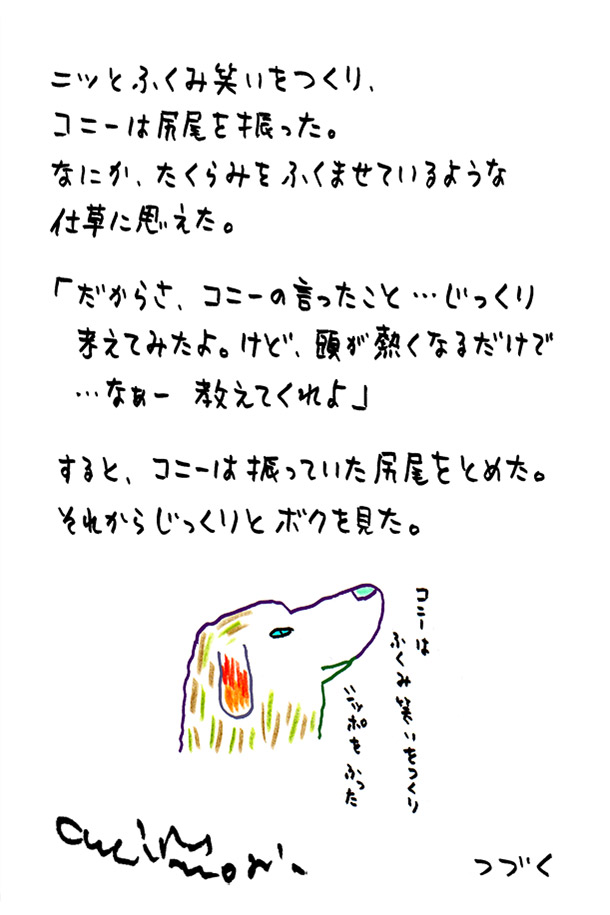 ニッとふくみ笑いをつくり、
コニーは尻尾を振った。
なにか、たくらみをふくませているような
仕草に思えた。
「だからさ、コニーの言ったこと…じっくり
考えてみたよ。けど、頭が熱くなるだけで
…なぁー 教えてくれよ」
すると、コニーは振っていた尻尾をとめた。
それからじっくりとボクを見た。
コニーは
ふくみ笑いをつくり
シッポをふった
つづく